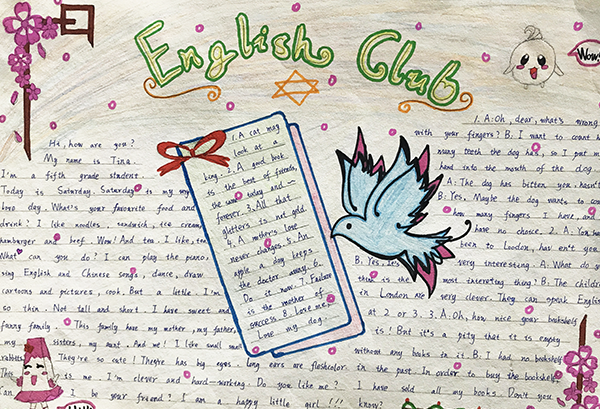 English Club
Wow!
Hi, how are you?
My name is Tina.
I'm a fifth grade student.
Today is Saturday. Saturday is my
day. What's your favourite food and
drink? I like noodles, sandwich, ice cream,
hamburger and beef. Wow! And tea, I like, too.
What can you do? I can play the piano,
sing English and Chinese songs, dance, draw
cartoons and pictures, cook. But a little. I'm
so thin. Not tall and short. I have sweet and
funny family. This family have my mother, my father,
my sisters, my aunt. And me! I like small
rabbits. They're so cute! They're has big eyes, long ears are fleshcolor
This is me. I'm clever and hard-working. Do you like me?
I be your friend? I am a happy little girl!!!
1. A cat may
look at a
king. 2. A good book
is the best of friends,
the same today and
forever. 3. All that
glitters is not gold.
4. A mother's love
never changes. 5. An
apple a day keeps
the doctor away. 6.
Do it now. 7. Failure
is the mother of
success. 8. Love me,
love my dog.
1. A: Oh, dear, what's wrong
with your fingers? B: I want to count
many teeth the dog has, so I put my
hand into the mouth of the dog.
A: The dog has bitten you, hasn't
B: Yes. Maybe the dog wants to
how many fingers I have, and
have no choice. 2. A: You
been to London, haven't you
B: Yes. It's very interesting. A: What do
think is the most interesting thing? B: The children
in London are very clever. They can speak English
at 2 or 3. 3. A: Oh, how nice your bookshelf
is! But it's a pity that it is empty
without any books in it. B: I had no bookshelf
in the past. In order to buy the bookshelf,
I have sold all my books. Don't you
know?